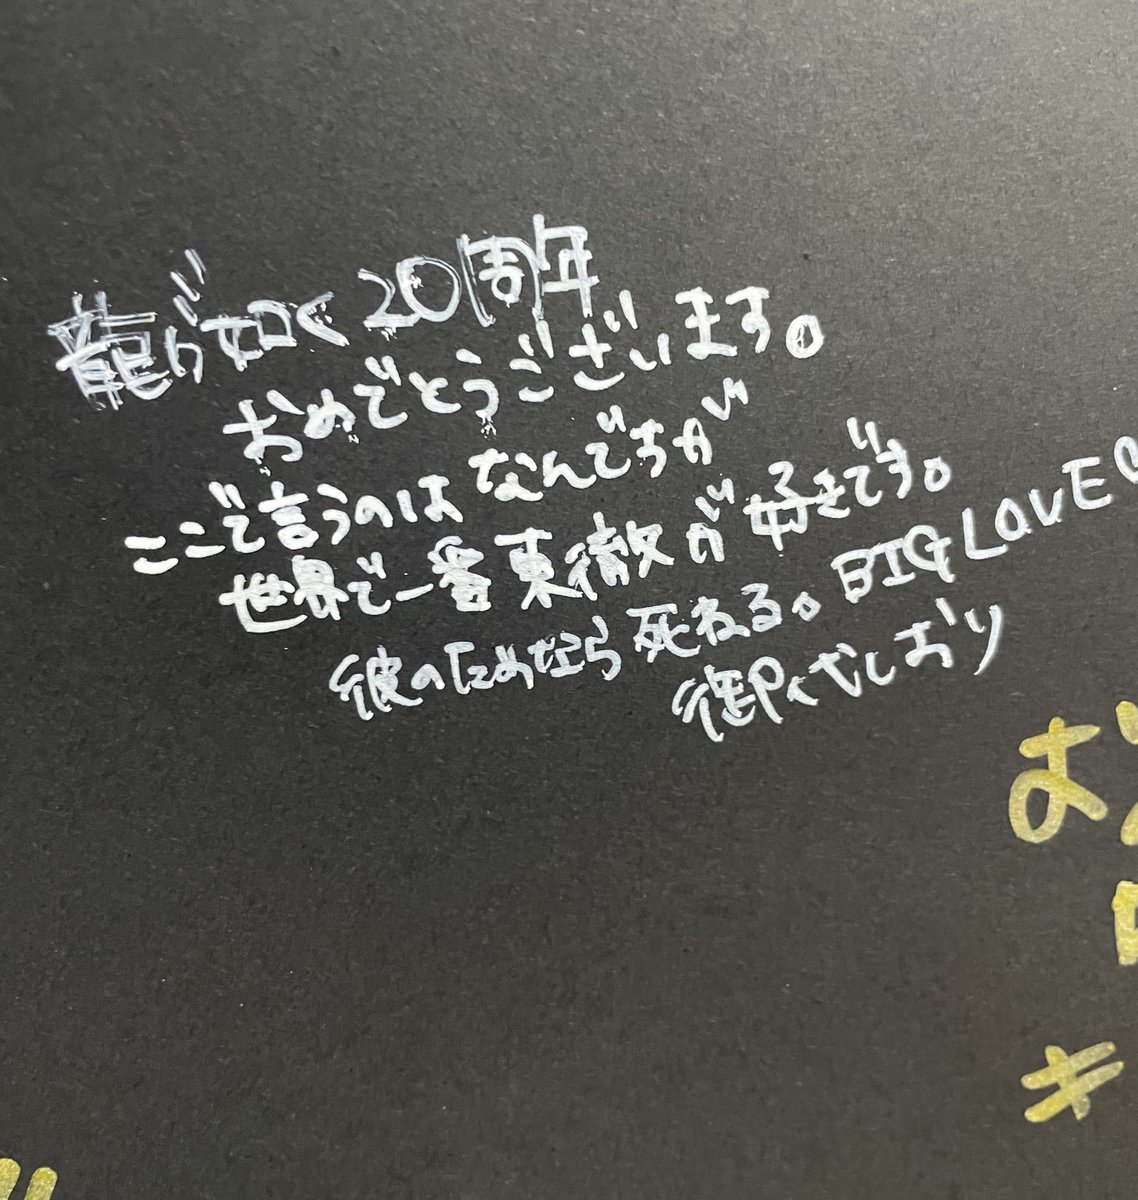 龍が如く20周年
おめでとうございます。
ここで言うのはなんですが
世界で一番東徹が好きです。
彼のためなら死ねる。BIG LOVE♡
しおり
お
キ